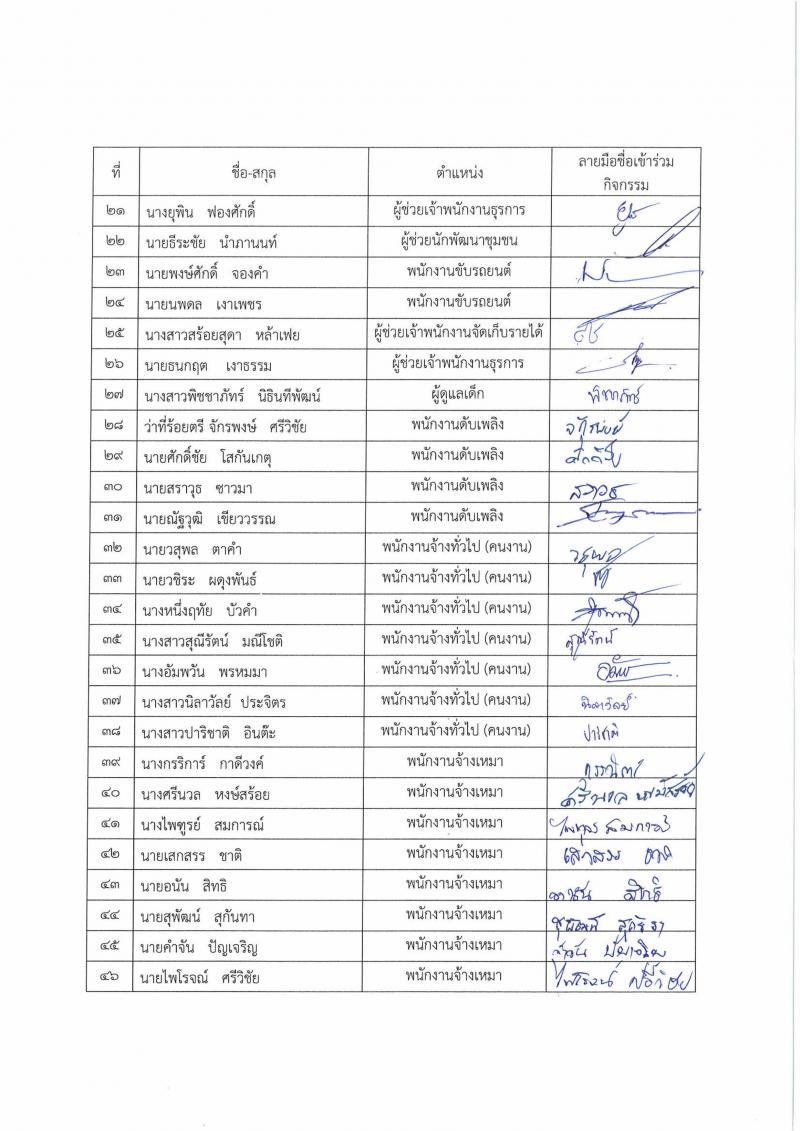 ที่ ชื่อ-สกุล ตำแหน่ง ลายมือชื่อเข้าร่วม
กิจกรรม
๒๑ นางยุพิน ฟองศักดิ์ ผู้ช่วยเจ้าพนักงานธุรการ
๒๒ นายธีระชัย นำภานนท์ ผู้ช่วยนักพัฒนาชุมชน
๒๓ นายพงษ์ศักดิ์ จองคำ พนักงานขับรถยนต์
๒๔ นายนพดล เงาเพชร พนักงานขับรถยนต์
๒๕ นางสาวสร้อยสุดา หล้าเฟย ผู้ช่วยเจ้าพนักงานจัดเก็บรายได้
๒๖ นายธนกฤต เงาธรรม ผู้ช่วยเจ้าพนักงานธุรการ
๒๗ นางสาวพิชชาภัทร์ นิธินทีพัฒน์ ผู้ดูแลเด็ก
๒๘ ว่าที่ร้อยตรี จักรพงษ์ ศรีวิชัย พนักงานดับเพลิง
๒๙ นายศักดิ์ชัย โสกันเกตุ พนักงานดับเพลิง
๓๐ นายสราวุธ ซาวมา พนักงานดับเพลิง สราวุธ
๓๑ นายณัฐวุฒิ เขียววรรณ พนักงานดับเพลิง
๓๒ นายวสุพล ตาคำ พนักงานจ้างทั่วไป (คนงาน) วสุพล
๓๓ นายวชิระ ผดุงพันธ์ พนักงานจ้างทั่วไป (คนงาน)
๓๔ นางหนึ่งฤทัย บัวคำ พนักงานจ้างทั่วไป (คนงาน)
๓๕ นางสาวสุณีรัตน์ มณีโชติ พนักงานจ้างทั่วไป (คนงาน) สุณีรัตน์
๓๖ นางอัมพวัน พรหมมา พนักงานจ้างทั่วไป (คนงาน)
๓๗ นางสาวนิลาวัลย์ ประจิตร พนักงานจ้างทั่วไป (คนงาน) นิลาวัลย์
๓๘ นางสาวปาริชาติ อินต๊ะ พนักงานจ้างทั่วไป (คนงาน) ปาริชาติ
๓๙ นางกรริการ์ กาดีวงค์ พนักงานจ้างเหมา
๔๐ นางศรีนวล หงษ์สร้อย พนักงานจ้างเหมา ศรีนวล หงษ์สร้อย
๔๑ นางไพฑูรย์ สมการณ์ พนักงานจ้างเหมา ไพฑูรย์ สมการณ์
๔๒ นายเสกสรร ชาติ พนักงานจ้างเหมา เสกสรร ชาติ
๔๓ นายอนัน สิทธิ พนักงานจ้างเหมา อนัน สิทธิ
๔๔ นายสุพัฒน์ สุกันทา พนักงานจ้างเหมา สุพัฒน์ สุกันทา
๔๕ นายคำจัน ปัญเจริญ พนักงานจ้างเหมา
๔๖ นายไพโรจณ์ ศรีวิชัย พนักงานจ้างเหมา ไพโรจน์ ศรีวิชัย